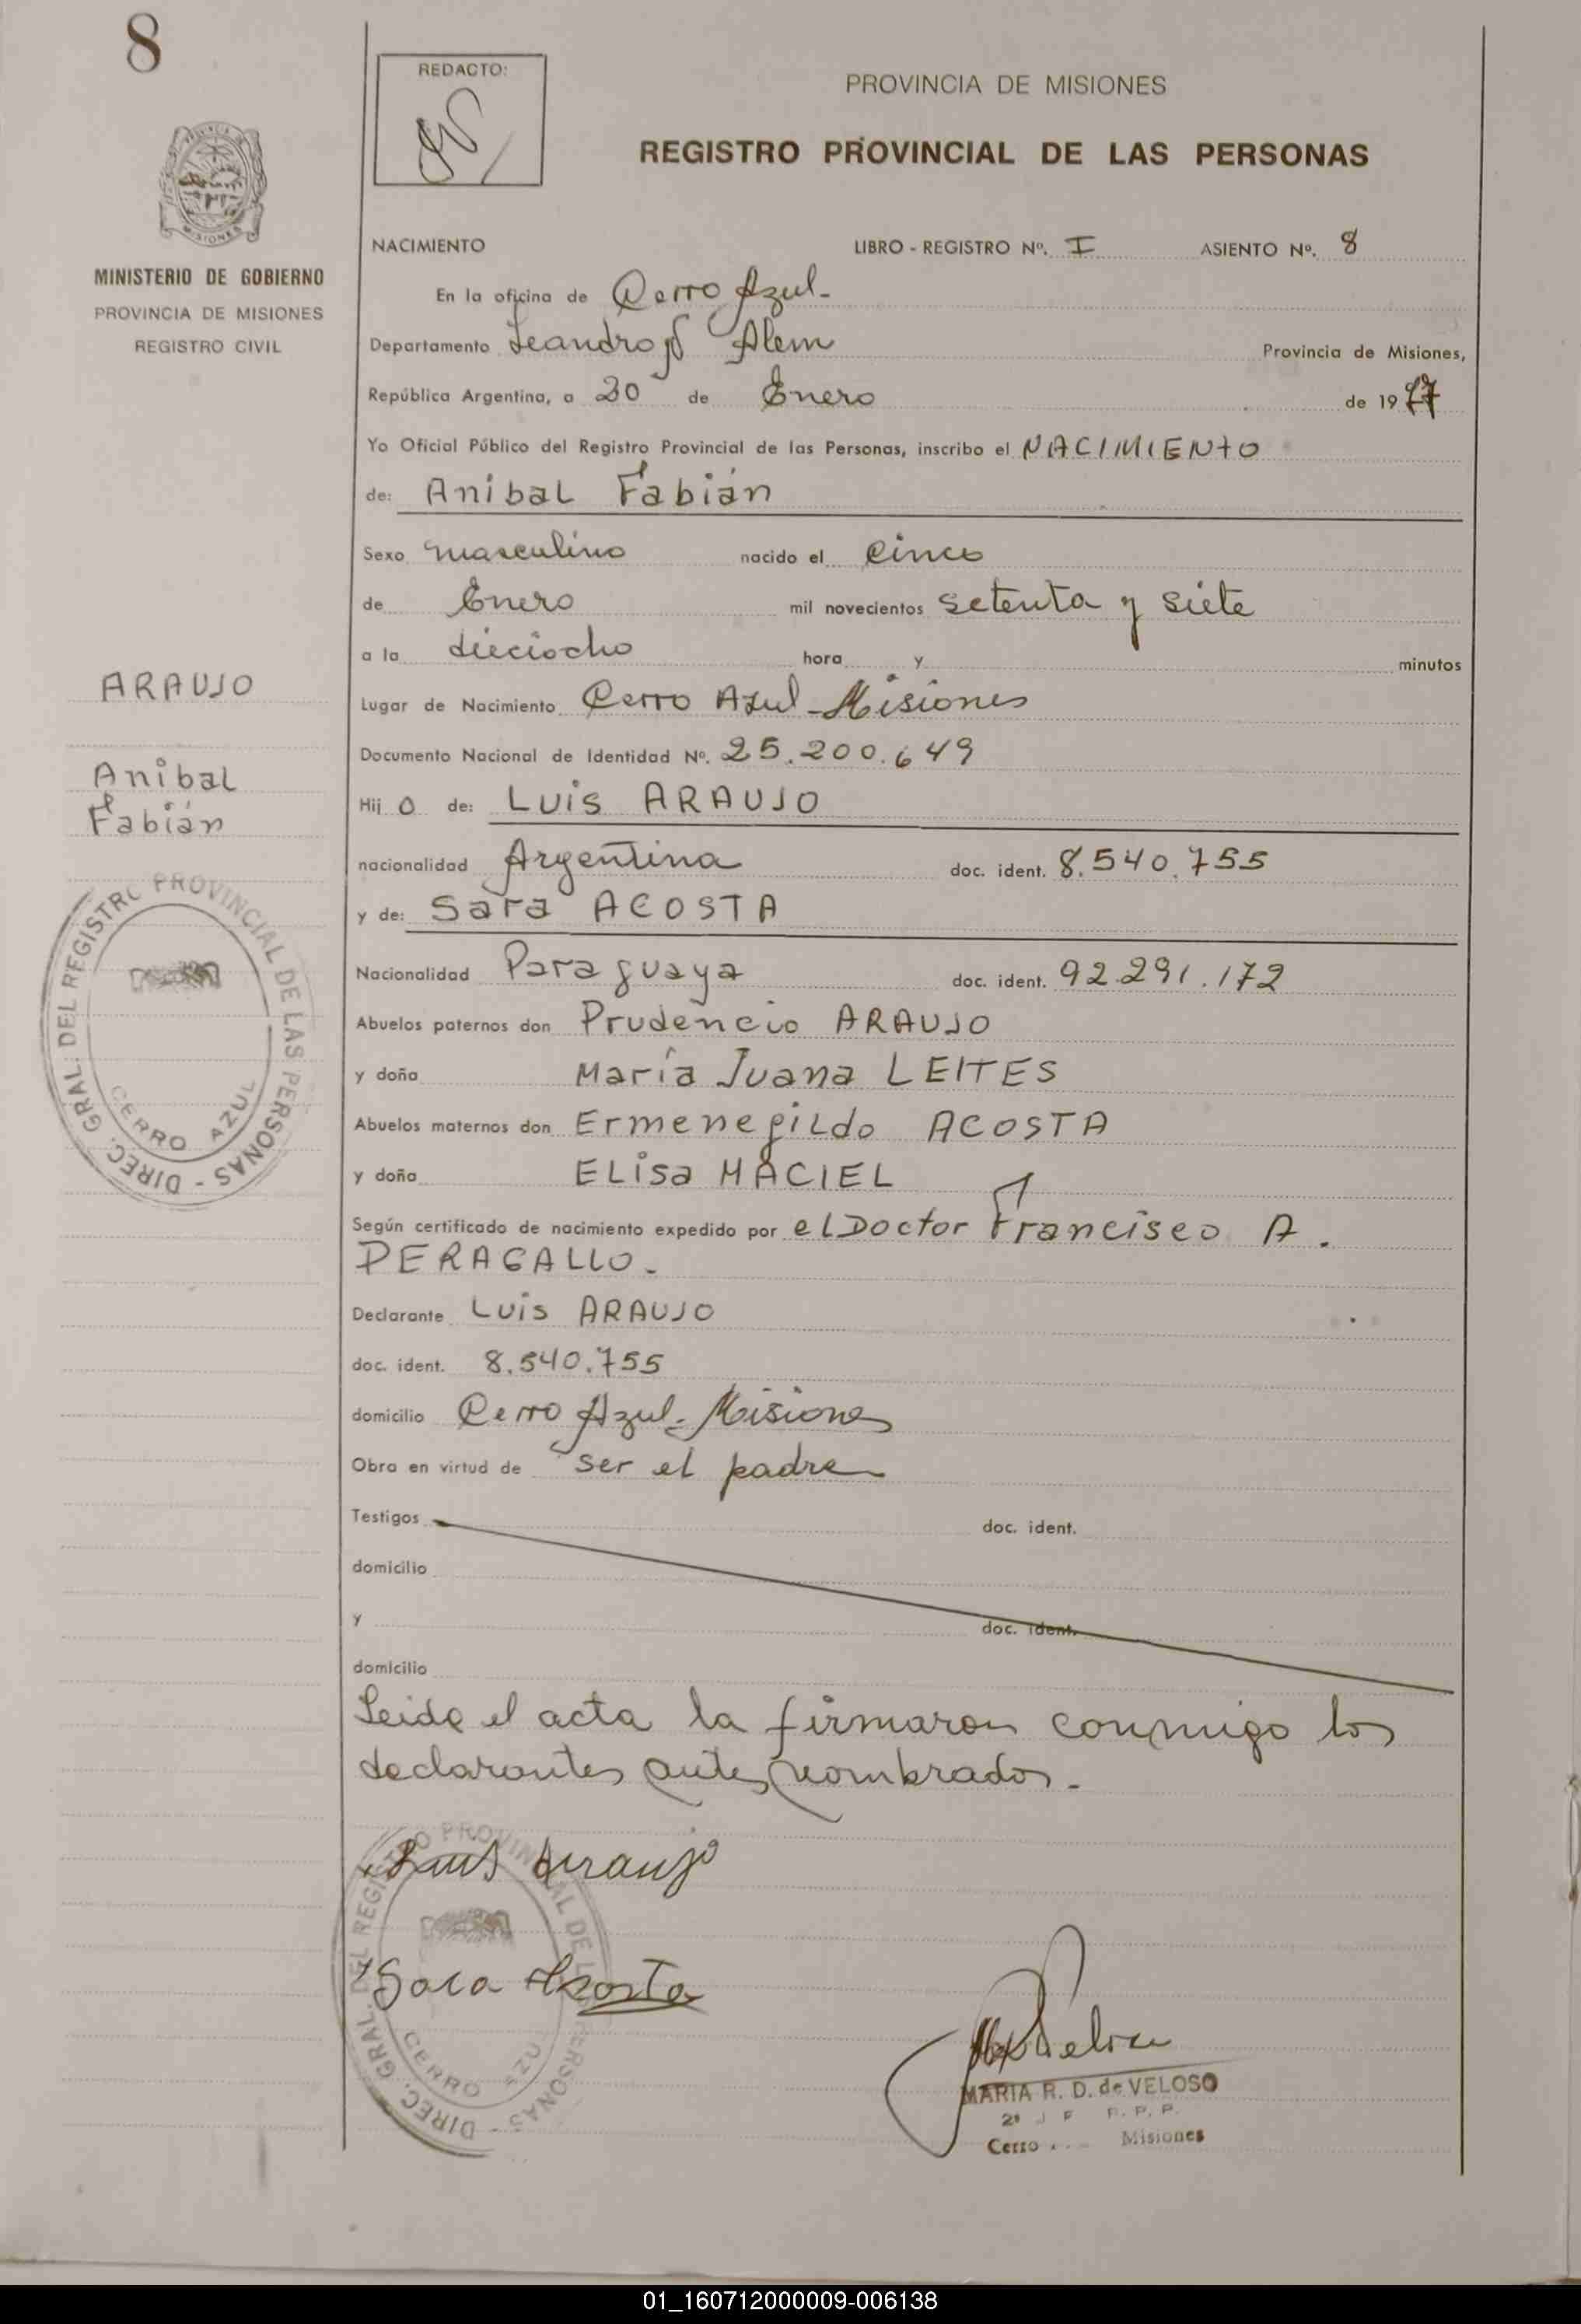 8
REDACTO:
PROVINCIA DE MISIONES
REGISTRO PROVINCIAL DE LAS PERSONAS
MISIONES
MINISTERIO DE GOBIERNO
PROVINCIA DE MISIONES
REGISTRO CIVIL
NACIMIENTO LIBRO - REGISTRO Nº. I ASIENTO Nº. 8
En la oficina de Cerro Azul-
Departamento Leandro N Alem Provincia de Misiones,
República Argentina, a 20 de Enero de 1977
Yo Oficial Público del Registro Provincial de las Personas, inscribo el NACIMIENTO
de: Anibal Fabián
Sexo masculino nacido el cinco
de Enero mil novecientos setenta y siete
a la dieciocho hora y minutos
Lugar de Nacimiento Cerro Azul-Misiones
Documento Nacional de Identidad Nº. 25.200.649
Hij o de: Luis ARAUJO
nacionalidad Argentina doc. ident. 8.540.755
y de: Sara ACOSTA
Nacionalidad Paraguaya doc. ident. 92.291.172
Abuelos paternos don Prudencio ARAUJO
y doña María Juana LEITES
Abuelos maternos don Ermenegildo ACOSTA
y doña ELisa MACIEL
Según certificado de nacimiento expedido por el Doctor Francisco A.
PERAGALLO.-
Declarante Luis ARAUJO
doc. ident. 8.540.755
domicilio Cerro Azul-Misiones
Obra en virtud de ser el padre
Testigos doc. ident.
domicilio
y doc. ident.
domicilio
Leida el acta la firmaron conmigo los
declarantes antes nombrados.-
ARAUJO
Anibal
Fabián
DIREC. GRAL. DEL REGISTRO PROVINCIAL DE LAS PERSONAS -
CERRO AZUL
Luis Araujo
Sara Acosta
DIREC. GRAL. DEL REGISTRO PROVINCIAL DE LAS PERSONAS -
CERRO AZUL
MARIA R. D. de VELOSO
R. P. P.
Cerro Misiones
01_160712000009-006138